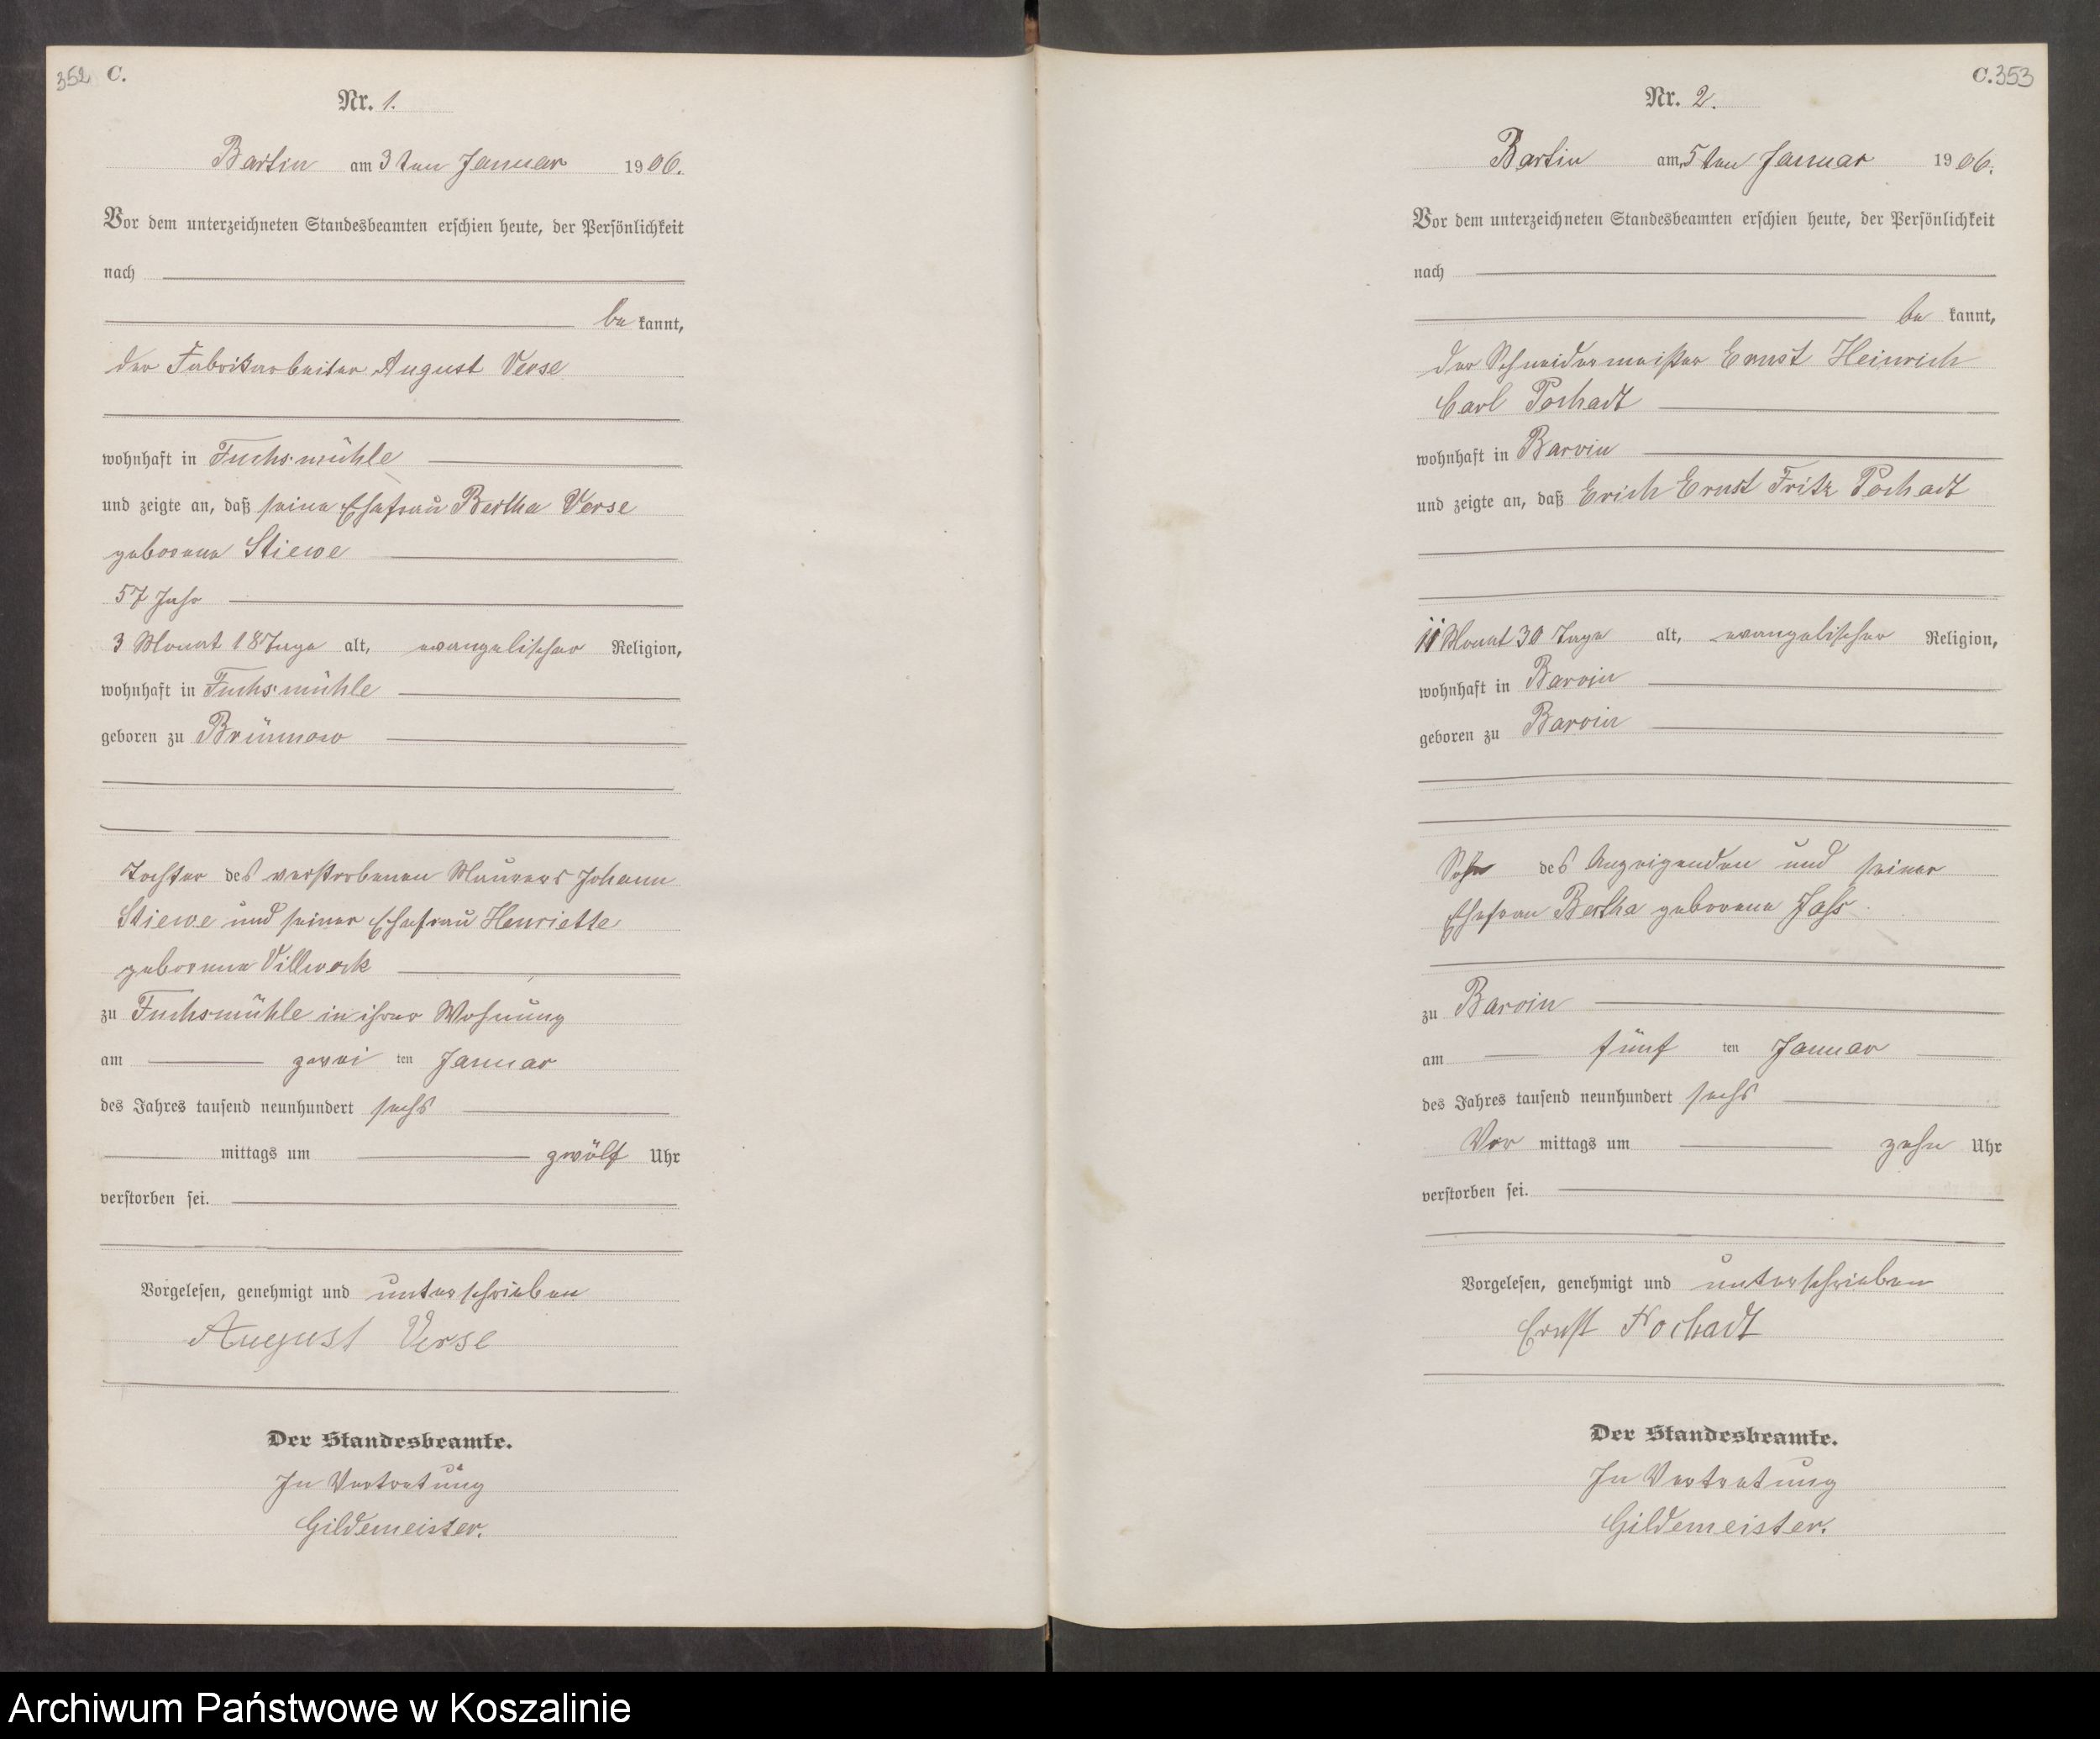 352 C.
Nr. 1.
Bartin am 3ten Januar 1906.
Vor dem unterzeichneten Standesbeamten erschien heute, der Persönlichkeit
nach
be kannt,
der Fabrikarbeiter August Verse
wohnhaft in Fuchsmühle
und zeigte an, daß seine Ehefrau Bertha Verse
geborene Stiewe
57 Jahr
3 Monat 18 Tage alt, evangelischer Religion,
wohnhaft in Fuchsmühle
geboren zu Brünnow
Tochter des verstorbenen Maurers Johann
Stiewe und seiner Ehefrau Henriette
geborene Villwock
zu Fuchsmühle in ihrer Wohnung
am zwei ten Januar
des Jahres tausend neunhundert sechs
mittags um zwölf Uhr
verstorben sei.
Vorgelesen, genehmigt und unterschrieben
August Verse
Der Standesbeamte.
In Vertretung
Gildemeister.
C. 353
Nr. 2.
Bartin am 5ten Januar 1906.
Vor dem unterzeichneten Standesbeamten erschien heute, der Persönlichkeit
nach
be kannt,
der Schneidermeister Ernst Heinrich
Carl Pochadt
wohnhaft in Barvin
und zeigte an, daß Erich Ernst Fritz Pochadt
11 Monat 30 Tage alt, evangelischer Religion,
wohnhaft in Barvin
geboren zu Barvin
Sohn des Anzeigenden und seiner
Ehefrau Bertha geborene Jahr
zu Barvin
am fünf ten Januar
des Jahres tausend neunhundert sechs
Vor mittags um zehn Uhr
verstorben sei.
Vorgelesen, genehmigt und unterschrieben
Ernst Pochadt
Der Standesbeamte.
In Vertretung
Gildemeister.
Archiwum Państwowe w Koszalinie